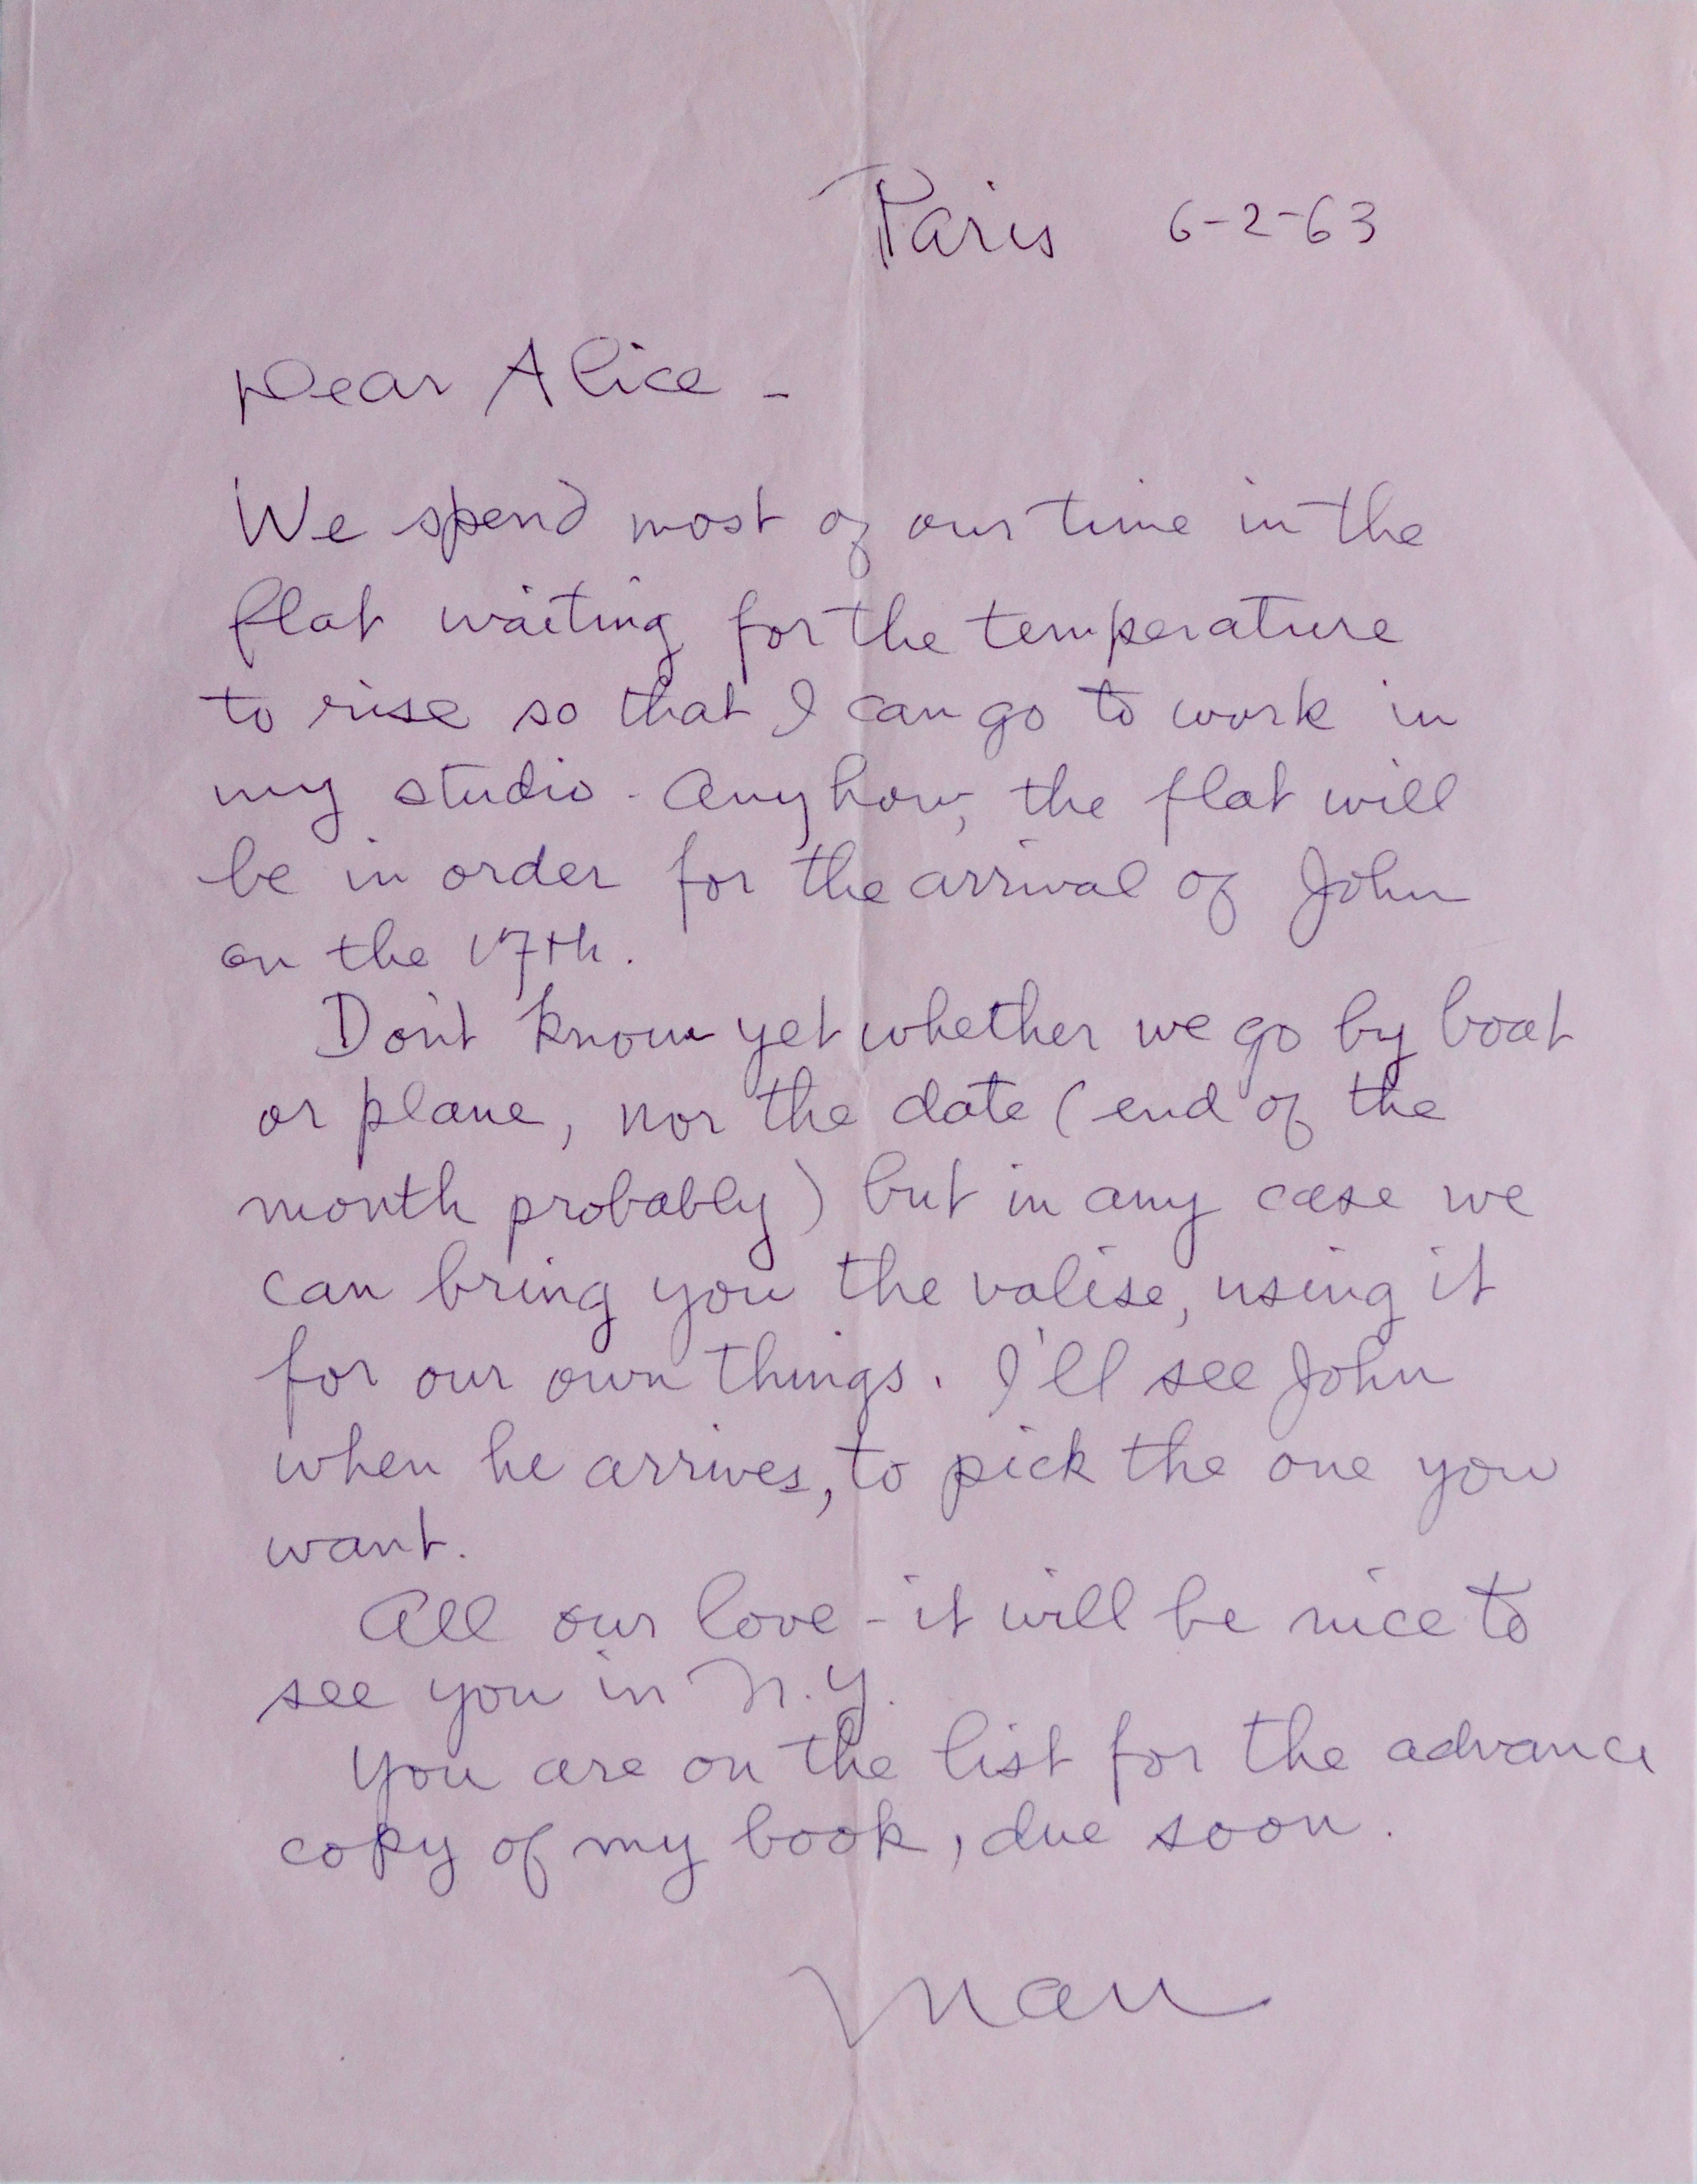 Paris 6-2-63
Dear Alice -
We spend most of our time in the
flat waiting for the temperature
to rise so that I can go to work in
my studio. Anyhow, the flat will
be in order for the arrival of John
on the 17th.
Don't know yet whether we go by boat
or plane, nor the date (end of the
month probably) but in any case we
can bring you the valise, using it
for our own things. I'll see John
when he arrives, to pick the one you
want.
All our love - it will be nice to
see you in N.Y.
You are on the list for the advance
copy of my book, due soon.
Man